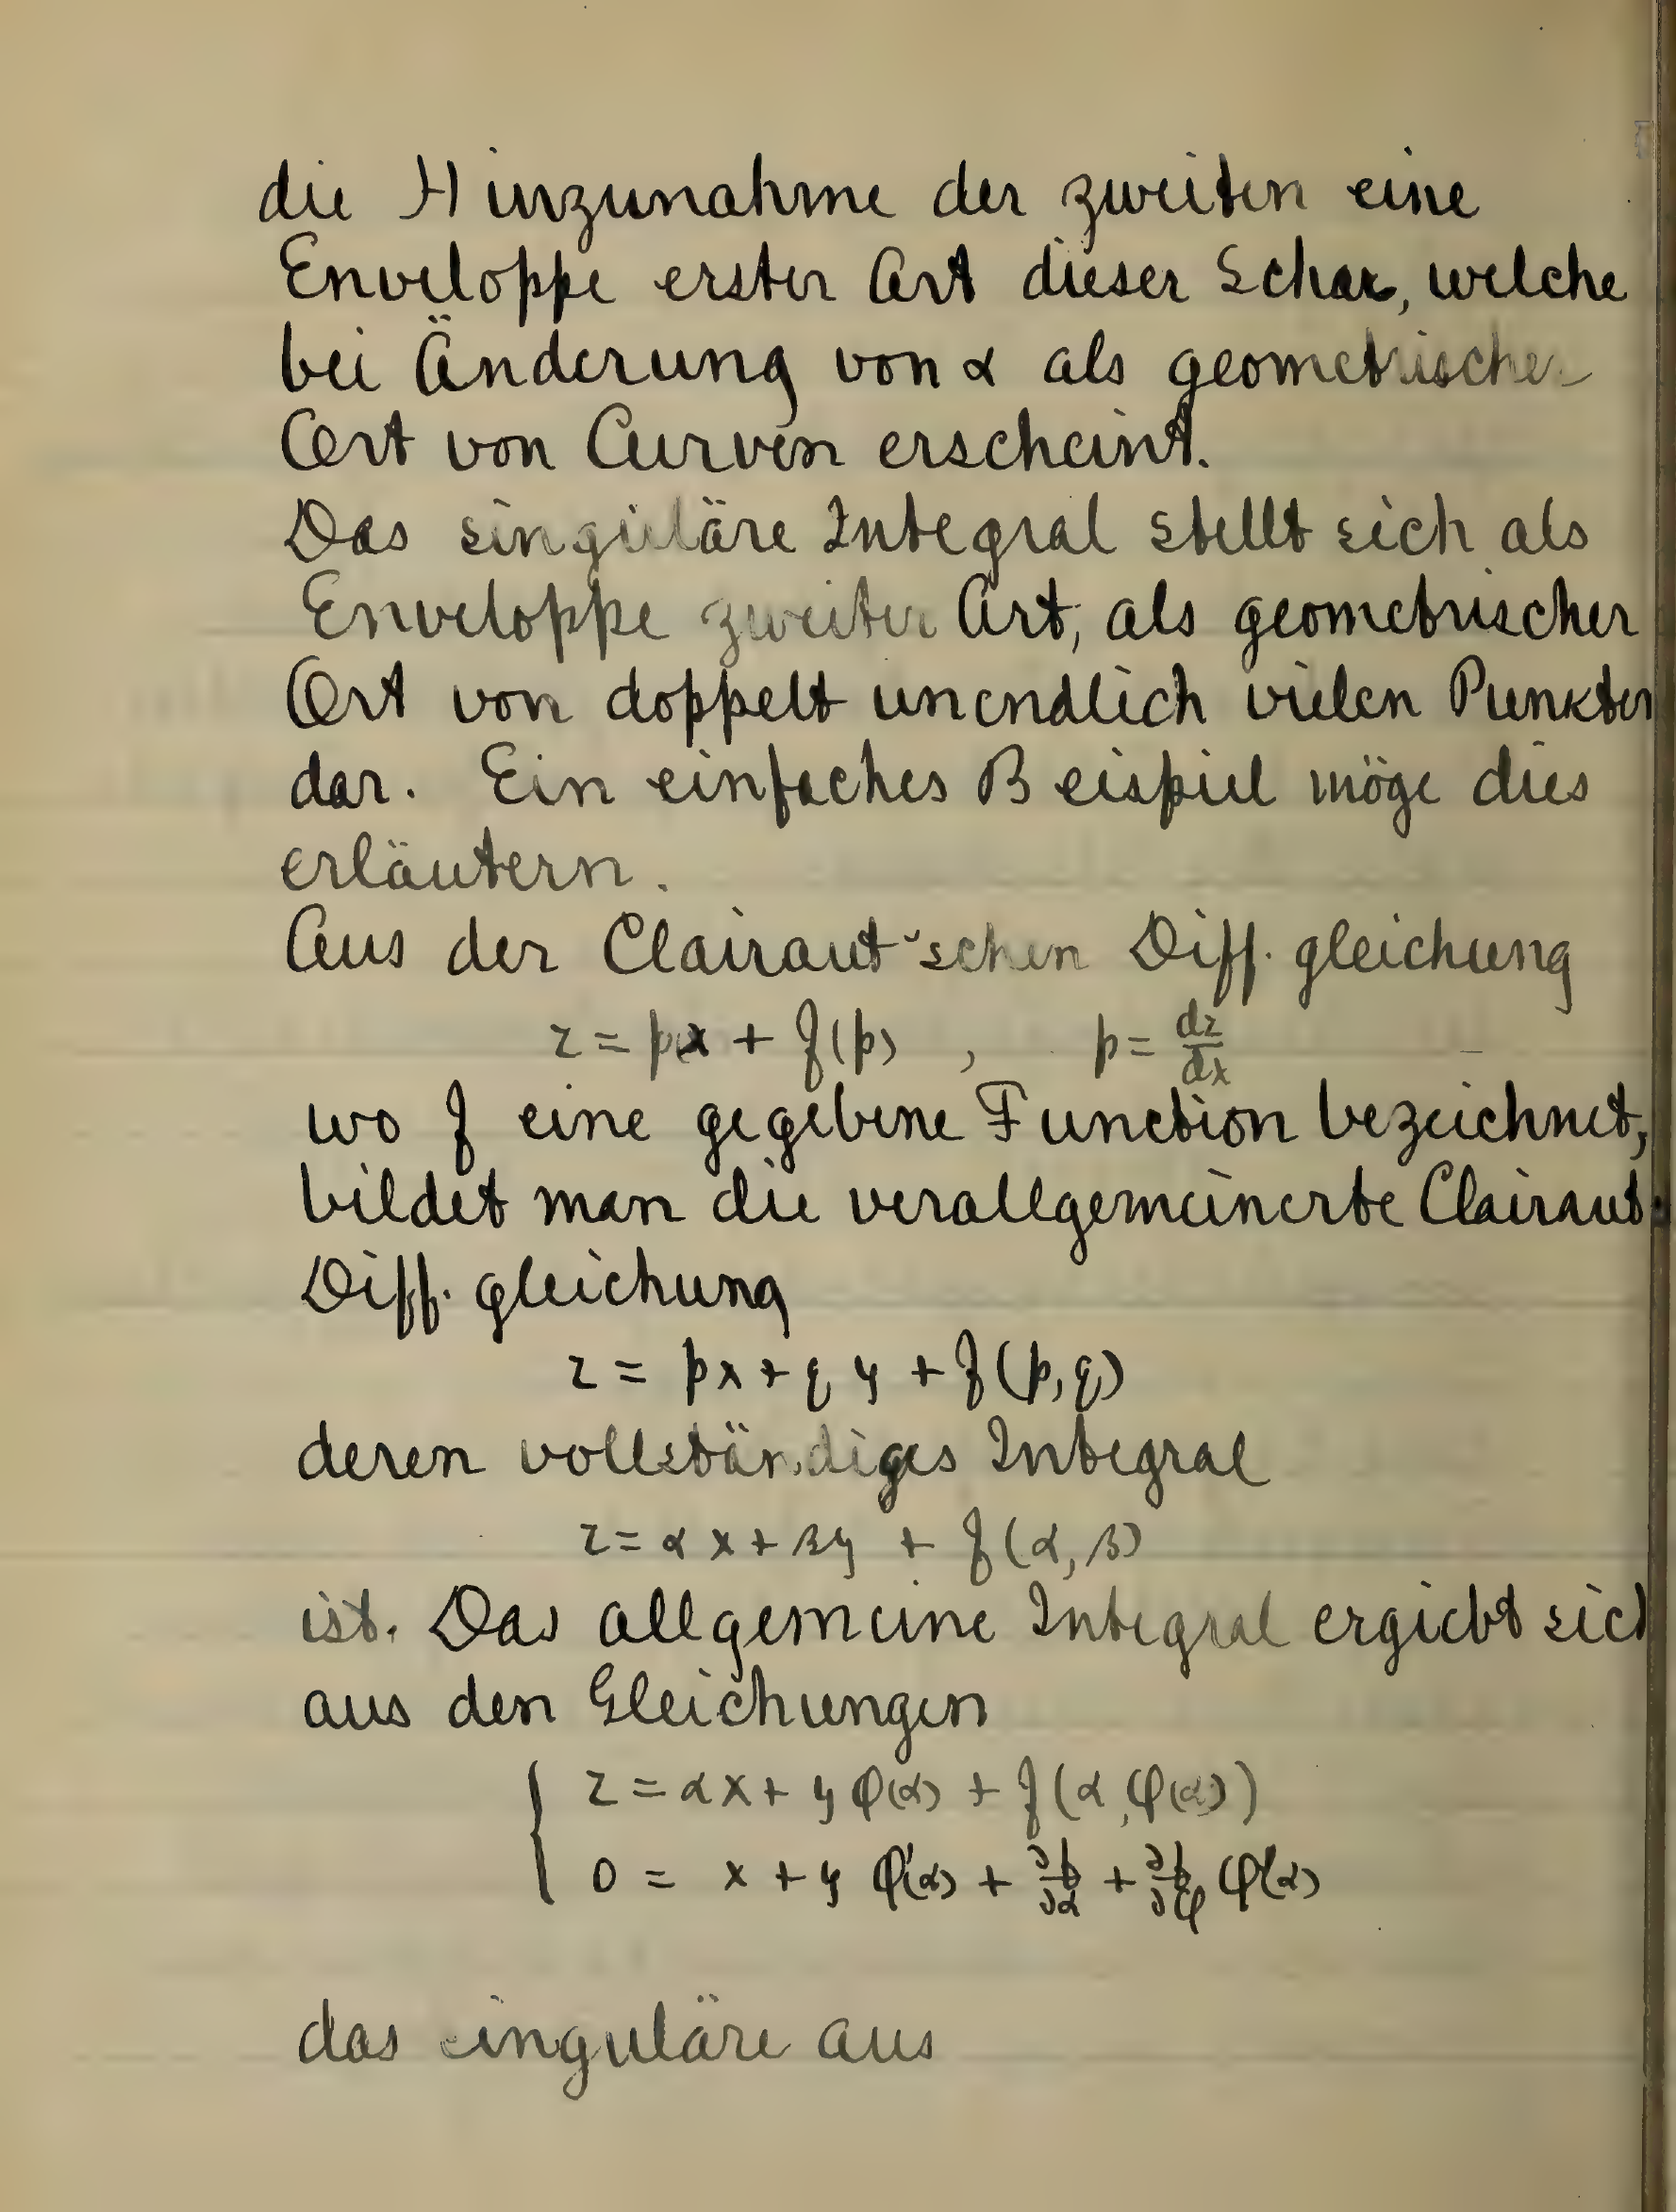 die Hinzunahme der zweiten eine
Enveloppe erster Art dieser Schar, welche
bei Änderung von α als geometrischer
Ort von Curven erscheint.
Das singuläre Integral stellt sich als
Enveloppe zweiter Art, als geometrischer
Ort von doppelt unendlich vielen Punkten
dar. Ein einfaches Beispiel möge dies
erläutern.
Aus der Clairaut'schen Diff. gleichung
z = px + f(p) , p = dz/dx
wo f eine gegebene Function bezeichnet,
bildet man die verallgemeinerte Clairaut.
Diff. gleichung
z = px + qy + f(p,q)
deren vollständiges Integral
z = αx + βy + f(α,β)
ist. Das allgemeine Integral ergiebt sich
aus den Gleichungen
{ z = αx + y φ(α) + f(α,φ(α))
0 = x + y φ'(α) + ∂f/∂α + ∂f/∂φ φ'(α)
das singuläre aus